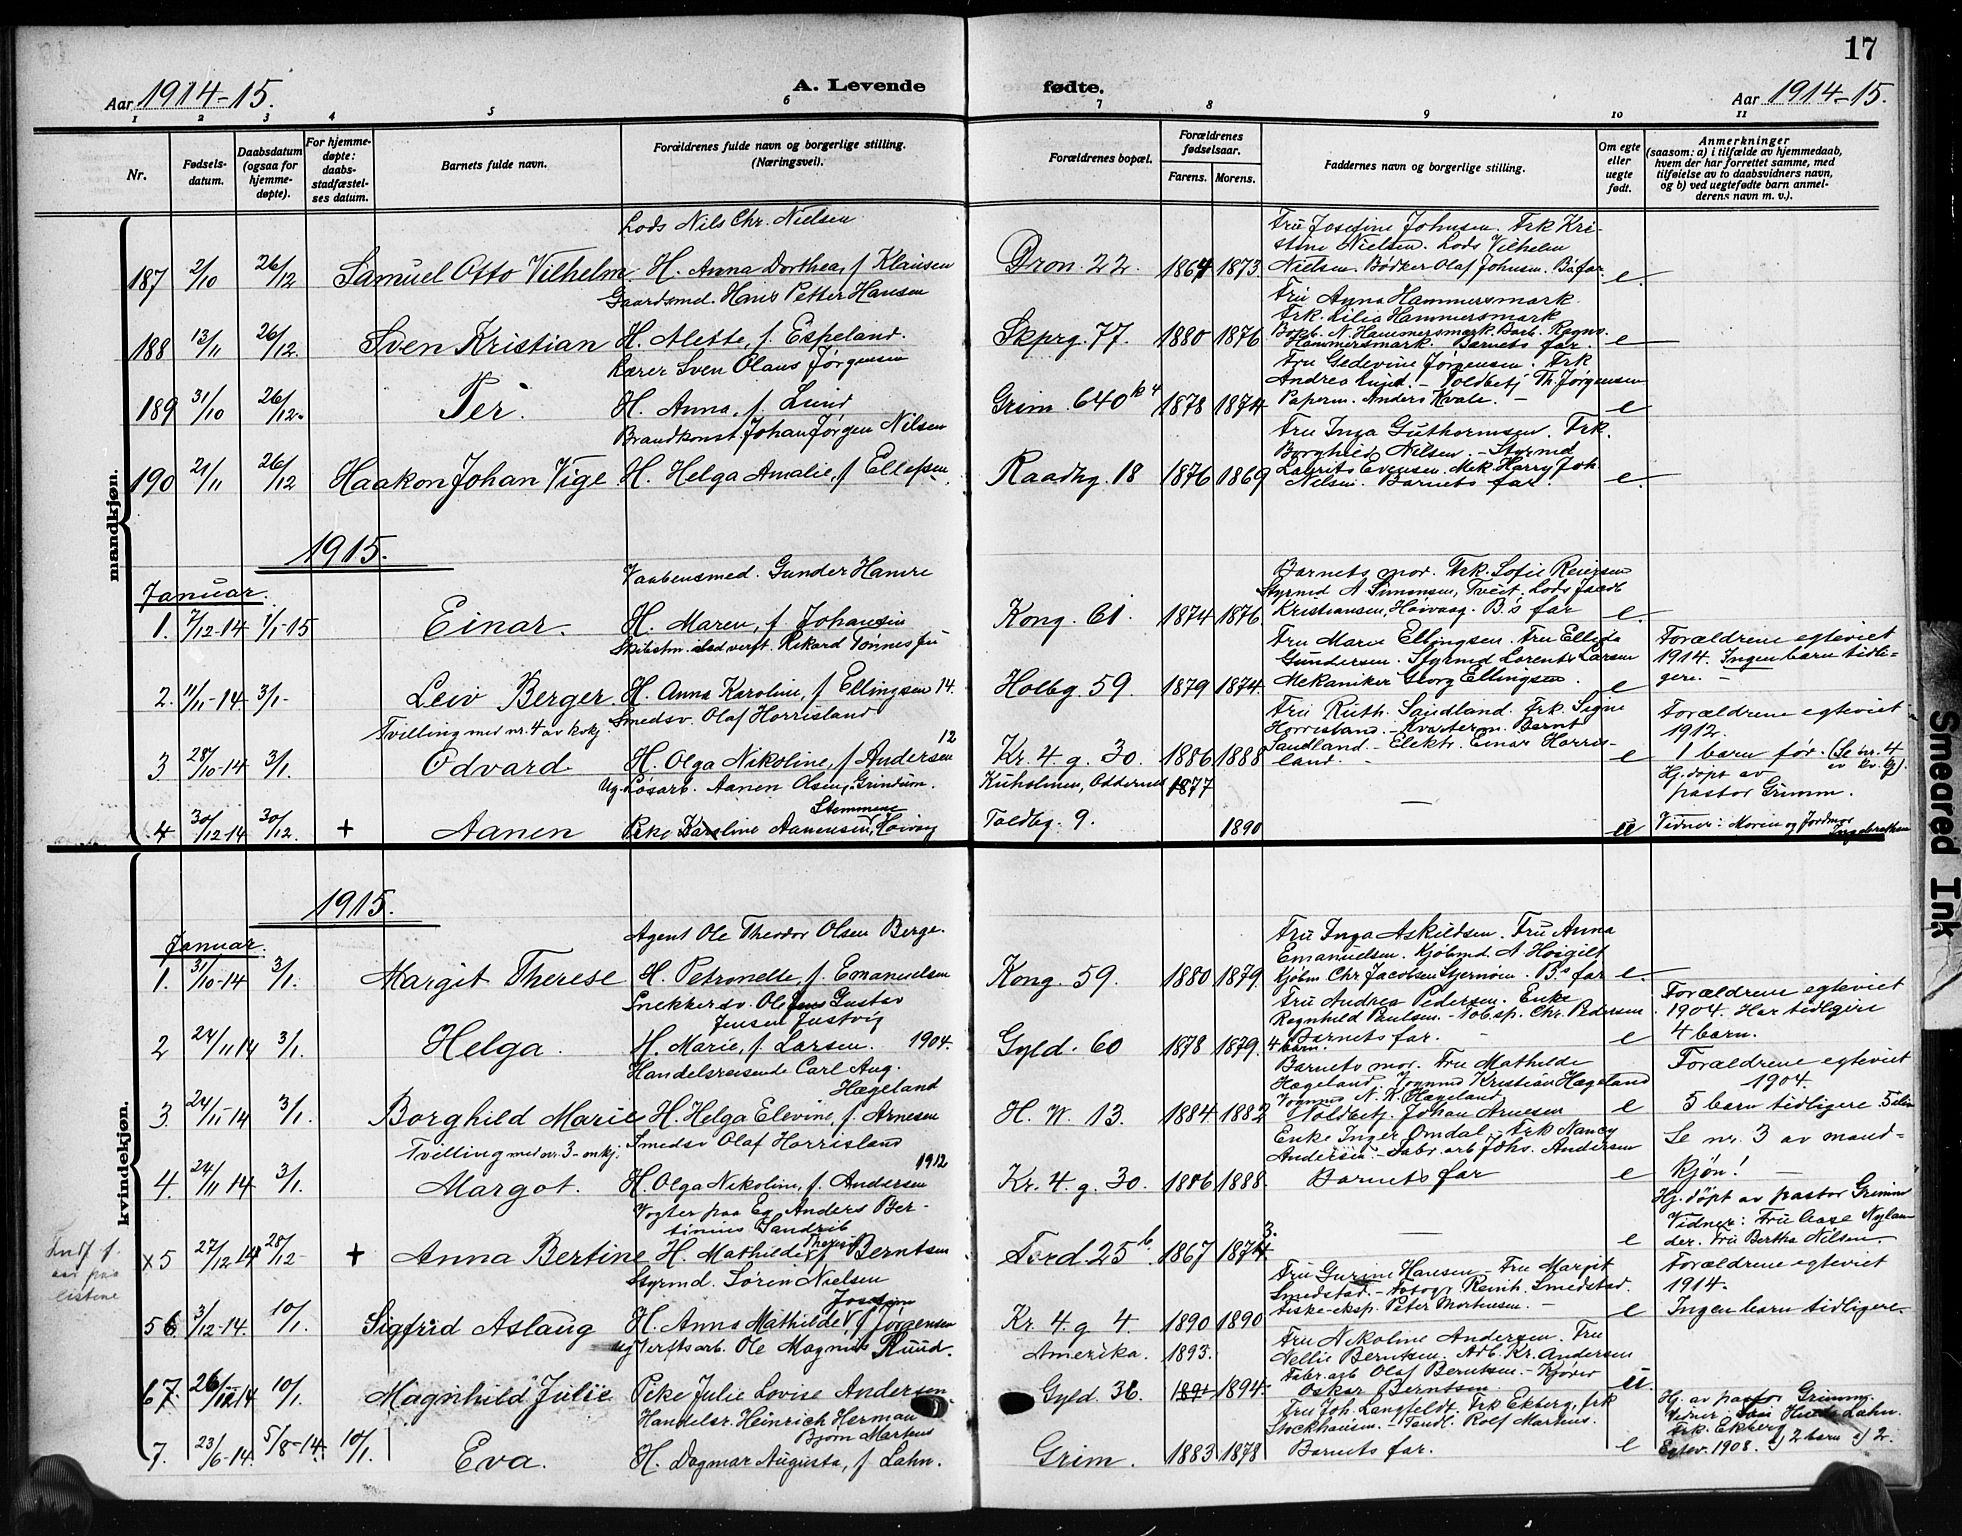 17
Aar 1914-15.
A. Levende fødte.
Aar 1914-15.
1 2 3 4 5 6 7 8 9 10 11
Nr.
Fødsels-
datum.
Daabsdatum
(ogsaa for
hjemme-
døpte).
For hjemme-
døpte:
daabs-
stadfæstel-
ses datum.
Barnets fulde navn.
Forældrenes fulde navn og borgerlige stilling.
(Næringsvei).
Forældrenes bopæl.
Forældrenes
fødselsaar.
Farens. Morens.
Faddernes navn og borgerlige stilling.
Om egte
eller
uegte
født.
Anmerkninger
(saasom: a) i tilfælde av hjemmedaab,
hvem der har forrettet samme, med
tilføielse av to daabsvidners navn,
og b) ved uegtefødte barn anmel-
derens navn m. v.).
mandkjøn.
Lods Nils Chr. Nielsen
187 2/10 26/12 Samuel Otto Vilhelm H. Anna Dorthea, f Klausen Dron. 22. 1864 1873
Fru Josefine Johnsen. Frk Kri-
stine Nielsen. Lods Vilhelm
Nielsen. Bødker Olaf Johnsen. B's far e.
Gaardsmd. Hans Petter Hansen
188 13/11 26/12. Sven Kristian H. Mette, f. Espeland. Skprg. 77. 1880 1876
Fru Anna Hammersmark
Frk. Lilia Hammersmark
Bokb. N. Hammersmark. Barb. Ragnv.
Hammersmark. Barnets far. e
Kører Sven Olaus Jørgensen
189 31/10 26/12. Per. H. Anna, f. Lund Grim 640 k 4 1878 1874
Fru Gedevine Jørgensen. Frk
Andrea Lund. - Toldbetj Th. Jørgensen
Paperm. Anders Kvale. - e
Brandkonst. Johan Jørgen Nilsen
190 21/11 26/12 Haakon Johan Vige H. Helga Amalie, f Ellefsen. Raadhg. 18 1876 1869
Fru Inga Guthormsen. Frk.
Borghild Nilsen. - Styrmd
Laurits Evensen. Mek Harry Joh.
Nilsen. Barnets far. e.
1915.
Januar.
Vaabensmed. Gunder Hamre
1. 7/12-14 1/1-15 Einar. H. Maren, f. Johansen Kong. 61. 1874 1876.
Barnets mor. Frk. Sofie Reiersen
Styrmd A Simonsen, Tveit. Lods Jacob
Kristiansen, Høivaag. B.s far e.
Skibstm. ved verft. Rikard Tønnes
2. 11/11-14. 3/1- Leiv Berger. H. Anna Karoline, f Ellingsen 14. Holbg. 59 1879 1874.
Fru Marie Ellingsen. Fru Ellida
Gundersen. Styrmd Lorents Larsen
Mekaniker Georg Ellingsen. e
Forældrene egteviet
1914. Ingen barn tidli-
gere. -
Tvilling med nr. 4 av kvkj.
Smedsv. Olaf Horrisland
12
3 28/10-14 3/1. Odvard H. Olga Nikoline, f Andersen Kr. 4. g. 30. 1886 1888
Fru Ruth. Sandland. Frk. Signe
Horrisland. - Kvarterm. Bernt
Sandland. - Elektr. Einar Horris-
land. - e
Forældrene egteviet
1912.
1 barn før. (Se nr. 4
av kv. kj).
Ug. Løsarb. Aanen Olsen, Grindum. Kuholmen, Odderne 1877
Stemmene
4 30/12-14 30/12. + Aanen Pike Karoline Aanensen, Høivag Toldbg. 9. 1890 - u
Hj. døpt av
pastor Grimm.
Vidner: Moren og Jordmor
Ingebretsen
kvindekjøn.
1915.
Januar.
Agent Ole Theodor Olsen Berge.
1. 31/10-14 3/1. Margit Therese H. Petronelle, f. Emanuelsen Kong. 59. 1880 1879.
Fru Inga Askildsen. Fru Anna
Emanuelsen. Kjøbmd. A Høigilt
Kjøbm Chr Jacobsen Stjernøen. B.s far e
Snekkersv. Ole Jens Gustav
Jensen Justvig
2 24/11 14 3/1. Helga. H. Marie, f. Larsen. 1904. Gyld. 60 1878 1879.
Fru Andrea Pedersen. Enke
Ragnhild Paulsen. - Tobsp. Chr. Pedersen.
Barnets far. - e
4 barn.
Forældrene egteviet
1904. Har tidligere
4 barn.
Handelsreisende Carl Aug.
Hægeland
3. 24/11-14 3/1. Borghild Marie H. Helga Elevine, f. Arnesen H. W. 13. 1884. 1882
Barnets mor. Fru Mathilde
Hægeland. Vognmd Kristian Hægeland
Vognmd N. K. Hageland
Toldbetj. Johan Arnesen e
Forældrene egteviet
1904.
5 barn tidligere 5 liv
Tvilling med nr. 3- mkj.
Smedsv Olaf Horrisland
1912
4. 24/11 14 3/1. Margot. H. Olga Nikoline, f. Andersen Kr. 4. g. 30. 1886 1888.
Enke Inger Omdal - Frk Nancy
Andersen. - Fabr. arb Johs. Andersen
Barnets far e
Se nr. 3 av mand-
kjøn! -
Vogter paa Eg Anders Ber-
tinius Sandrib
x5 27/12 14 28/12- + Anna Bertine H. Mathilde f Berntsen Tord. 25 b. 1867 1874 3. - e
Hj. døpt av pastor Grimm
Vidner: Fru Aase Nylan-
der. Fru Bertha Nilsen.
listene
Styrmd. Sören Nielsen
Josefine
56 3/12-14. 10/1. Sigfrid Aslaug H. Anna Mathilde f Jørgensen Kr. 4. g 4. 1890 1890
Fru Gurine Hansen - Fru Margit
Smedstad. - Fotogr Reinh. Smedstad.
Fiske-eksp. Peter Mortensen. - e
Forældrene egteviet
1914.
Ingen barn tidligere-
ug Verftsarb. Ole Magnus Ruud. Amerika. 1893.
67. 26/10 14 10/1. Magnhild Julie Pike Julie Lovise Andersen Gyld. 36 1891 1894-
Fru Nikoline Andersen. Fru
Nellie Berntsen. Arb. Kr. Andersen
Fabr. arb Olaf Berntsen - Kjører
Oskar Berntsen u.
Handelsr. Heinrich Herman
Bjørn Martens
7. 23/6-14 5/8-14. 10/1. Eva. H. Dagmar Augusta, f Lahn. Grim. 1883 1878
Fru Joh. Langfeldt. Frk Ekberg, frk
Stockhausen. - Tandl. Rolf Martens.
Barnets far. e
Hj. av pastor Grimm.
Vidner: Fru Lahn.
Frk. Ekberg
Egtev. 1908. a) 2 barn a) 2.
Smeared Ink